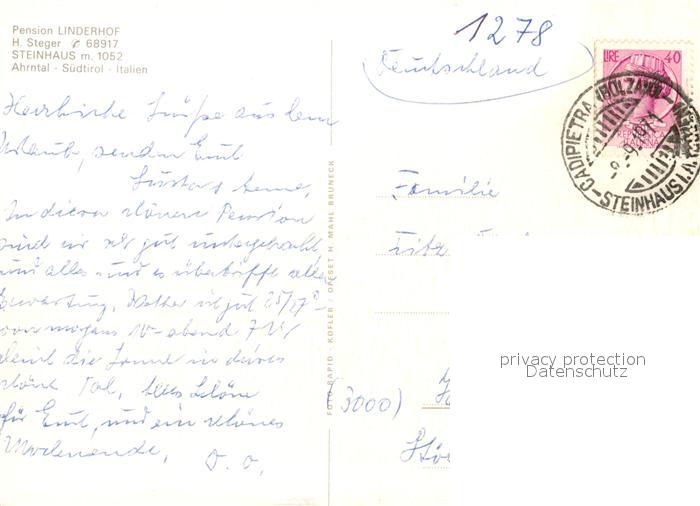 Pension LINDERHOF
H. Steger ✆ 68917
STEINHAUS m. 1052
Ahrntal - Südtirol - Italien
1278
Deutschland
LIRE 40
REPUBBLICA
ITALIANA
CADIPIETRA (BOLZANO)
-9.9.1971
STEINHAUS I.
Herzliche Grüße aus dem
Urlaub, senden Euch
In dieser schönen Pension
sind wir sehr gut untergebracht
und alles und es übertrifft alle
Erwartung. Wetter ist gut 25/27°
von morgens 10 - abend 7 Uhr
scheint die Sonne in dieses
schöne Tal, alles Schöne
für Euch, und ein schönes
Wochenende,
FOTO RAPID - KOFLER / OFFSET H. MAHL BRUNECK
Familie
Fritz
(3000)
privacy protection
Datenschutz